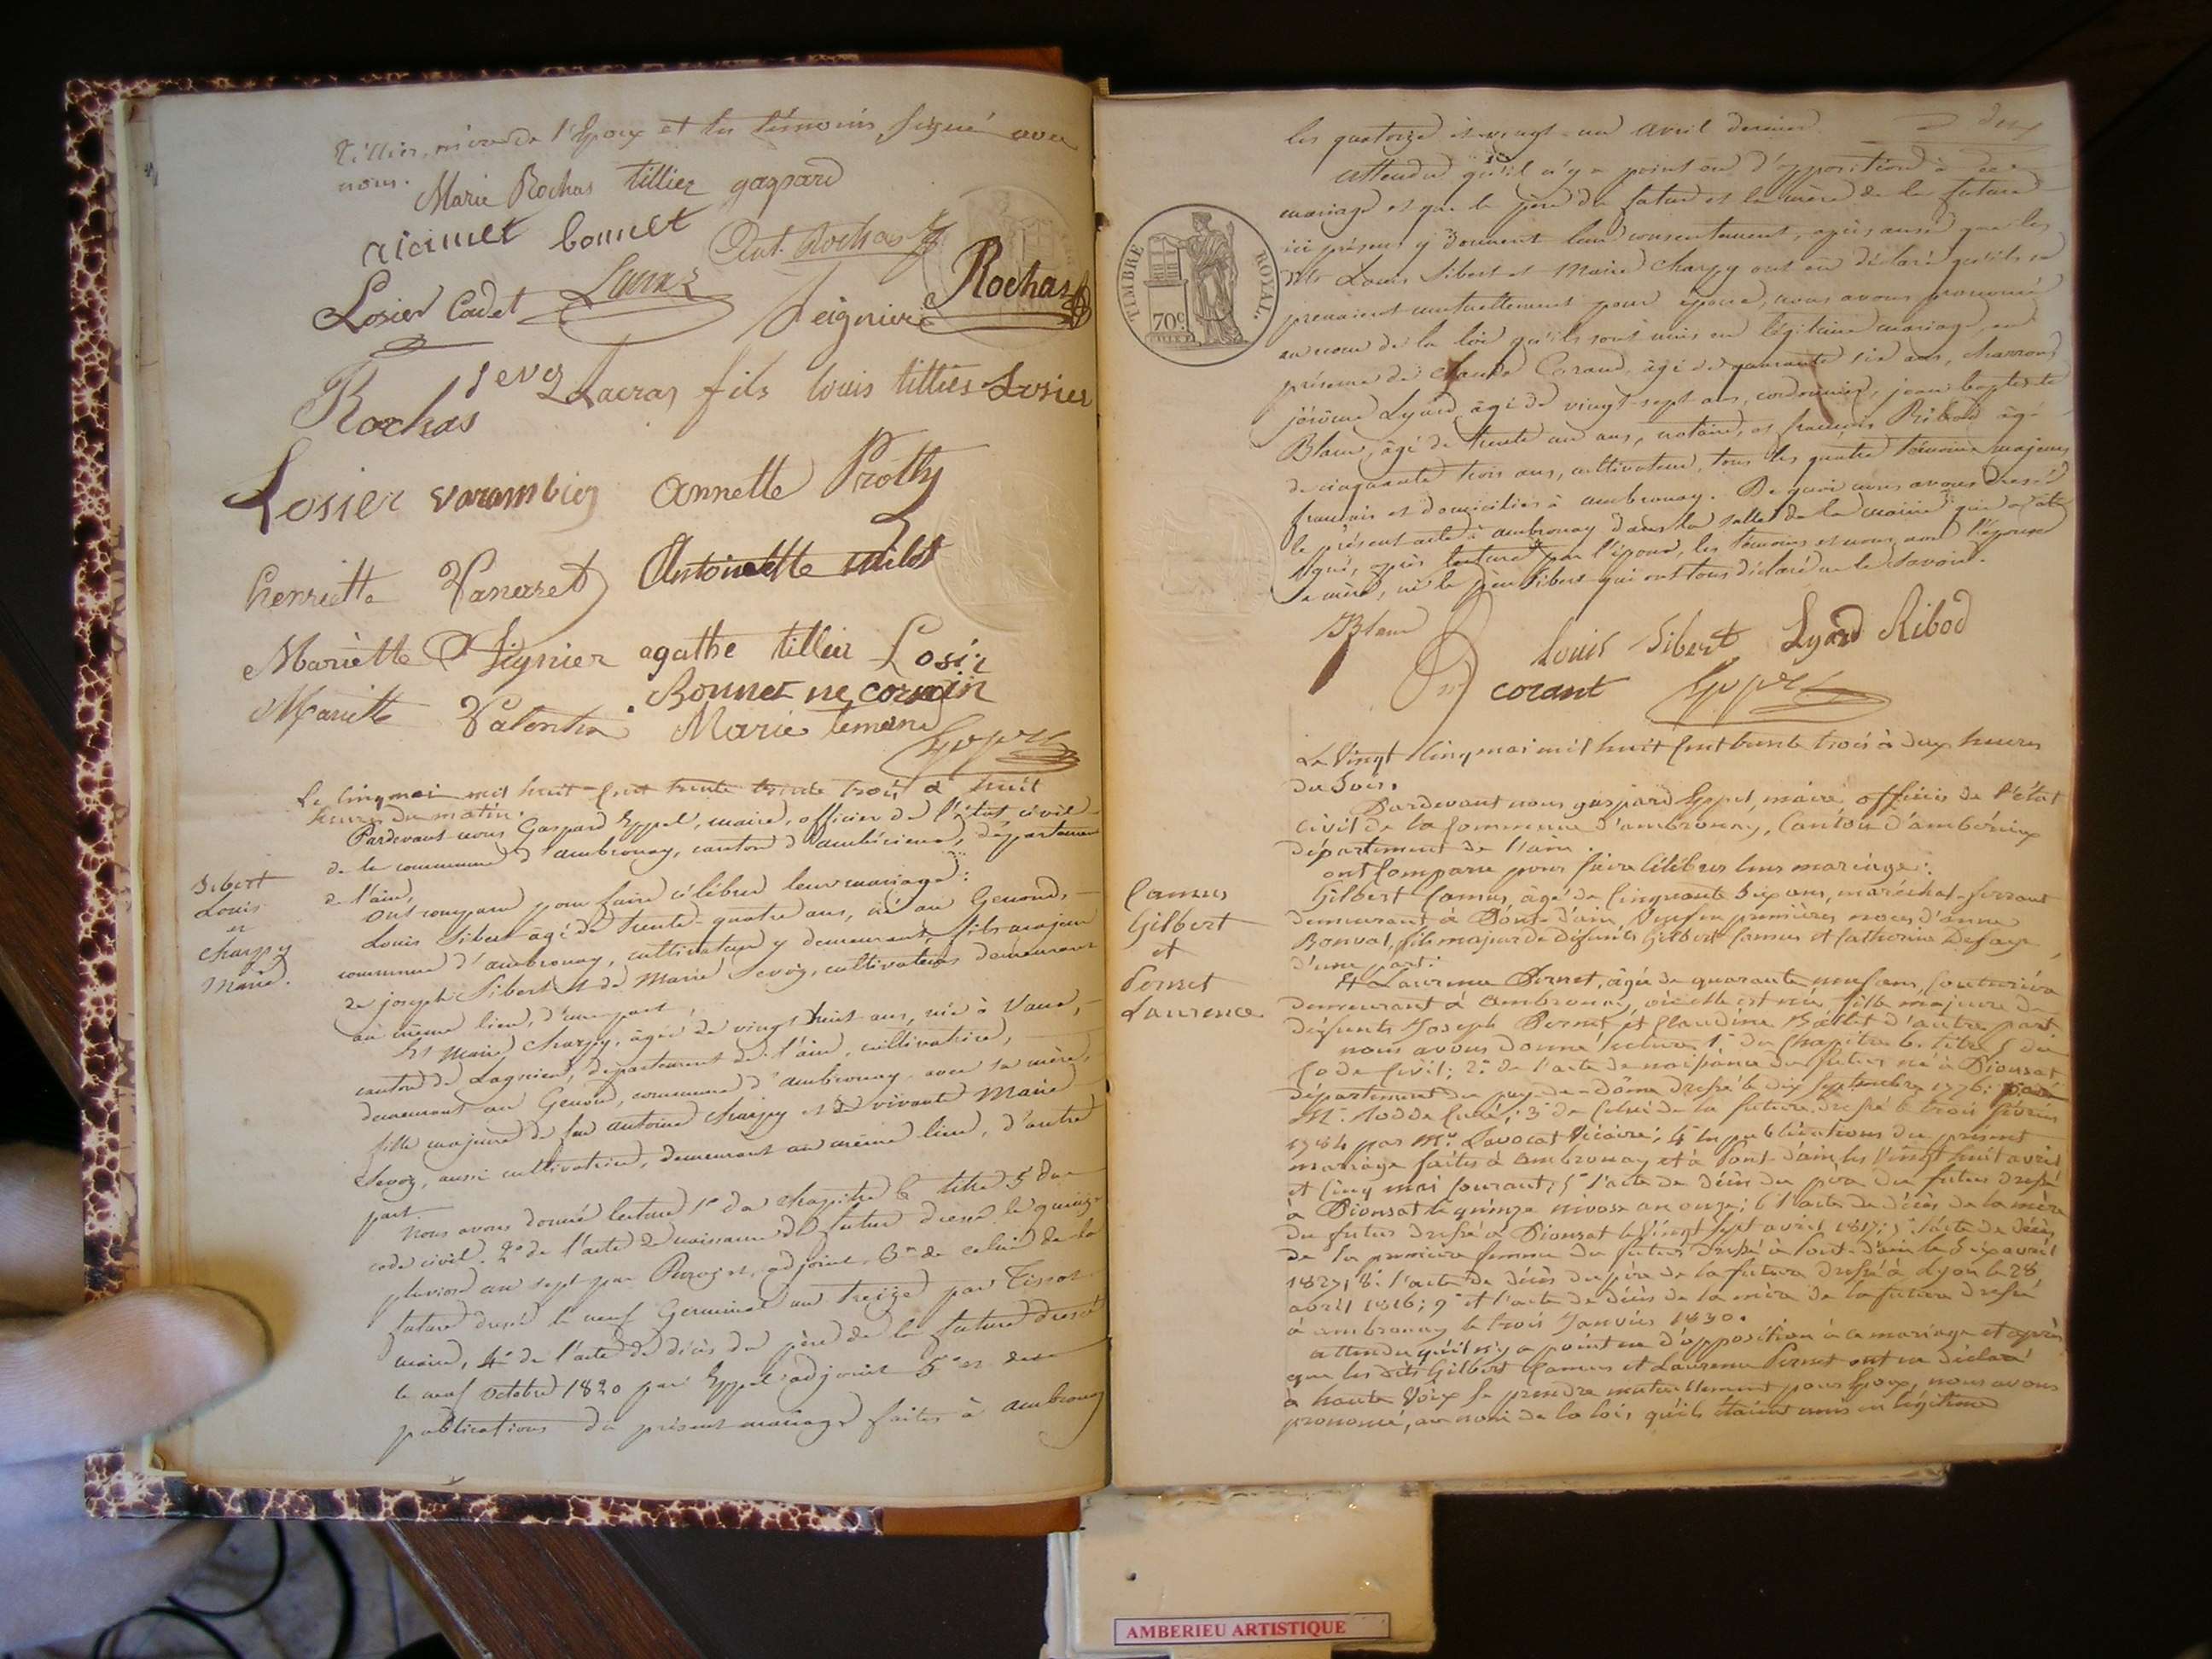 Tillier, mère de l'Epoux et les témoins signé avec
nous.
Marie Rochas tillier gaspard
bonnet Ant. Rochas
Losier Cadet Rochas
Rochas fils louis tillier Losier
Losier varambier annette Protty
henriette Vanaret Antoinette
Mariette agathe tillier Losier
Mariette Valentin Bonnet ne cormoin
Marie
Le Cinq mai mil huit Cent trente trois à huit
heures du matin.
Pardevant nous Gaspard Eppel, maire, officier de l'état civil
de la commune d'ambronay, canton d'ambérieux, département
de l'ain,
Sibert
Louis
et
Charpy
Marie.
Ont comparu pour faire célébrer leur mariage:
Louis Sibert âgé de trente-quatre ans, né au Genoud,
commune d'ambronay, cultivateur y demeurant, fils majeur
de joseph Sibert et de Marie Sevoz, cultivateurs demeurant
au même lieu, d'une part,
Et Marie Charpy, âgée de vingt huit ans, née à Vaux,
canton de Lagnieu, département de l'ain, cultivatrice,
demeurant au Genoud, commune d'ambronay avec sa mère,
fille majeure de feu antoine Charpy et de vivante Marie
Sevoz, aussi cultivatrice, demeurant au même lieu, d'autre
part.
Nous avons donné lecture 1° du chapitre 6 titre 5 du
code civil. 2° de l'acte de naissance du futur dressé le quinze
pluviose an sept par adjoint, 3° de celui de la
future dressé le neuf Germinal an treize par Tissot
maire, 4° de l'acte de décès du père de la future dressé
le neuf octobre 1820 par Eppel adjoint 5° et des
publications du présent mariage faites à ambronay
les quatorze et vingt-un avril dernier
attendu qu'il n'y a point eu d'opposition à ce
mariage et que le père du futur et la mère de la future
ici présens y donnent leur consentement, après aussi que les
dits Louis Sibert et Marie Charpy ont eu déclaré qu'ils se
prenaient mutuellement pour époux, nous avons prononcé
au nom de la loi qu'ils sont unis en légitime mariage, en
présence de Claude Corand, âgé de quarante six ans, charron
jérôme Lyard, âgé de vingt-sept ans, cordonnier, jean baptiste
Blanc, âgé de trente un ans, notaire, et françois Ribod âgé
de cinquante trois ans, cultivateur, tous les quatre témoins majeurs
français et domiciliés à ambronay. De quoi nous avons dressé
le présent acte à ambronay dans la salle de la mairie qui a été
signé, après lecture par l'époux, les témoins et nous, non l'épouse
sa mère, ni le père Sibert qui ont tous déclaré ne le savoir.
TIMBRE ROYAL.
70c
Blanc Louis Sibert Lyard Ribod
corant Eppel
Le Vingt Cinq mai mil huit Cent trente trois à deux heures
du Soir,
Pardevant nous gaspard Eppel, maire officier de l'état
civil de la Commune d'ambronay, Canton d'ambérieux
département de l'ain.
ont Comparu pour faire Célébrer leur mariage:
Camus
Gilbert
et
Pernet
Laurence
Gilbert Camus, âgé de Cinquante Six ans, maréchal-ferrant
demeurant à Pont-d'ain, Veuf en premières noces d'anne
Bonval, fils majeur de défunts Gilbert Camus et Catherine Defaye
d'une part.
Et Laurence Pernet, âgée de quarante neuf ans, Couturière
demeurant à Ambronay, où elle est née, fille majeure de
défunts Joseph Pernet et Claudine Ballet d'autre part
nous avons donné lecture 1° du Chapitre 6. titre 5 du
Code Civil; 2° de l'acte de naissance du futur né à Pionsat
département du puy-de-dôme dressé le dix Septembre 1776. par
Mr. Curé; 3° de Celui de la future dressé le trois février
1784 par Mr. Lavocat Vicaire; 4° les publications du présent
mariage faites à ambronay et à Pont-d'ain les Vingt huit avril
et Cinq mai Courant; 5° l'acte de décès du père du futur dressé
à Pionsat le quinze nivose an onze; 6 l'acte de décès de la mère
du futur dressé à Pionsat le Vingt sept avril 1817; 7° l'acte de décès
de la première femme du futur dressé à Pont-d'ain le Six avril
1827; 8° l'acte de décès du père de la future dressé à Lyon le 28
avril 1816; 9° et l'acte de décès de la mère de la future dressé
à ambronay le trois Janvier 1830.
attendu qu'il n'y a point eu d'opposition à ce mariage et après
que les dits Gilbert Camus et Laurence Pernet ont eu déclaré
à haute Voix Se prendre mutuellement pour Epoux, nous avons
prononcé, au nom de la loi, qu'ils étaient unis en légitime
AMBERIEU ARTISTIQUE